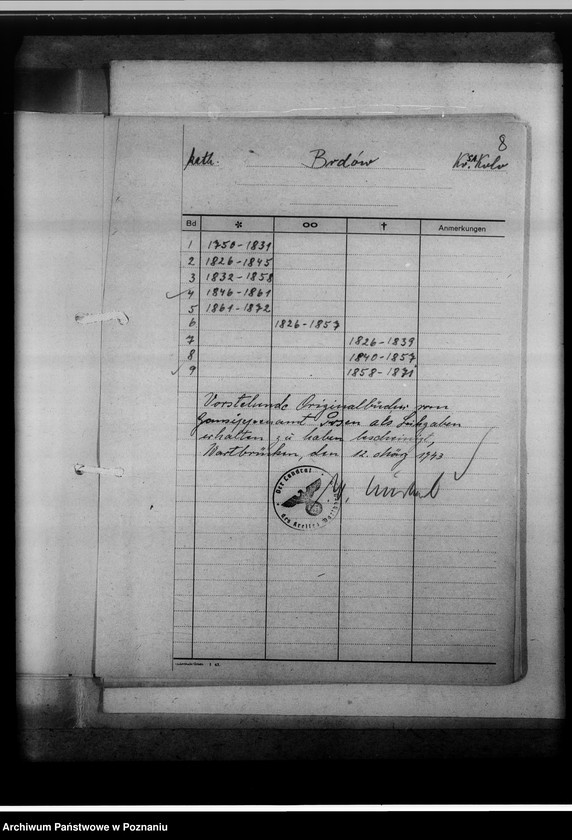 8
kath. Brdów Kr. Kolo
Bd * ∞ † Anmerkungen
1 1750-1831
2 1826-1845
3 1832-1858
4 1846-1861
5 1861-1872
6 1826-1857
7 1826-1839
8 1840-1857
9 1858-1871
Vorstehende Originalbücher vom
Gausippenamt Posen als Leihgaben
erhalten zu haben bescheinigt,
Wartbrücken, den 12. März 1943
Der Landrat
des Kreises
Archiwum Państwowe w Poznaniu